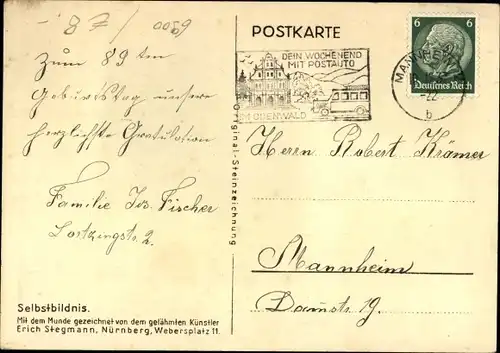 8 7 / 0069
POSTKARTE
DEIN WOCHENEND
MIT POSTAUTO
IM ODENWALD
6 6
Deutsches Reich
b
Zum 89 ten
Geburtstag unsere
herzlichste Gratulation
Familie Jos. Fischer
Lortzingstr. 2.
Original-Steinzeichnung
Herrn Robert Krämer
Mannheim
Dammstr. 19.
Selbstbildnis.
Mit dem Munde gezeichnet von dem gelähmten Künstler
Erich Stegmann, Nürnberg, Webersplatz 11.